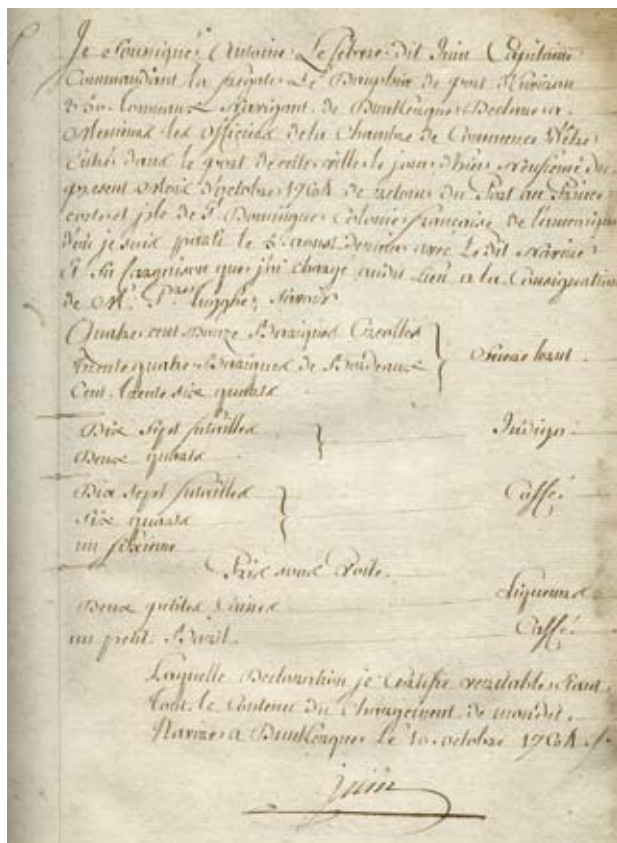 Je Soussigné Antoine Lefebvre dit Juin Capitaine
Commandant la fregate Le Dauphin de port
tonneaux Navigant de Dunkerque Declare a
Messieurs les officiers de la Chambre de Commerce d'être
Entré dans le port de cette ville le jour d'hier neufieme du
present Mois d'octobre 1764 de retour du Port au Prince
coste et jsle de St. Domingue Colonie francaise de lamerique
d'ou je suis parti le aoust dernier avec Le dit Navire
Et Sa Cargaison que j'ai chargé audit Lieu a la Consignation
de Mr. Savoir
Quatre cent Bariques
trente quatre Bariques de Bordeaux
Cent trente six quarts
Sucre brut
Dix Sept futailles
Deux quarts
Indigo
Dix Sept futailles
Six quarts
un sixieme
Caffé
Pris sous Voile
Deux petites Liqueurs
un petit Baril Caffé
Laquelle Declaration je Certifie veritable
tout le Contenu du Chargement de mondit
Navire a Dunkerque Le 10 octobre 1764
juin